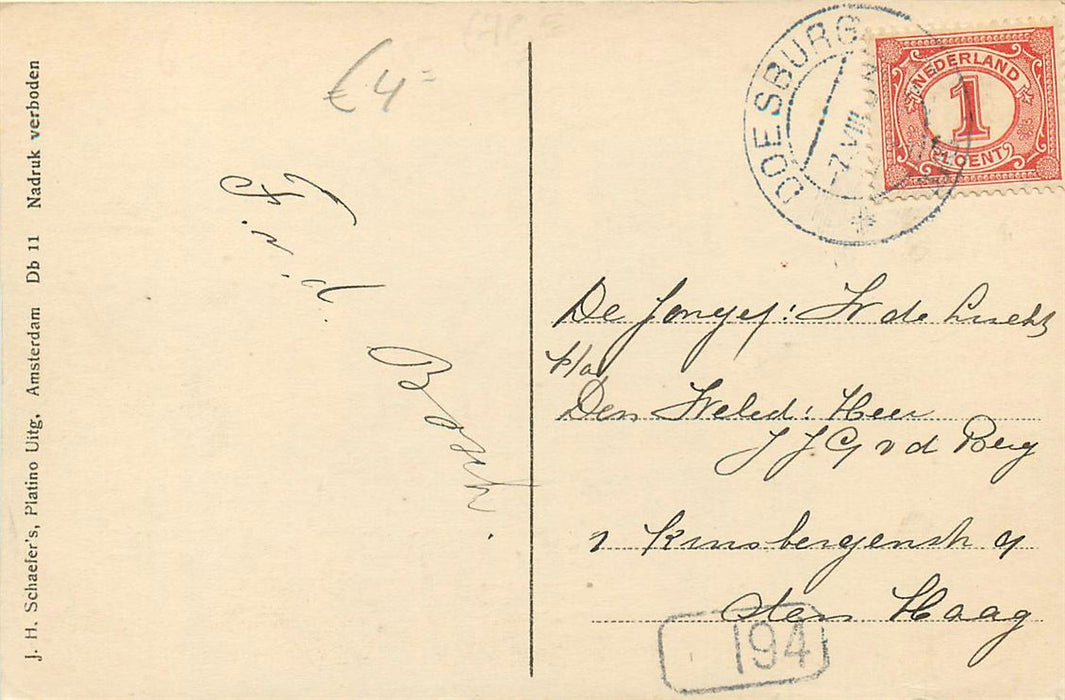 J. H. Schaefer's, Platino Uitg. Amsterdam Db 11 Nadruk verboden
€ 4=
F. v. d. Bosch.
DOESBURG
7 VIII
NEDERLAND
1
CENT
De Jongej: W de Lucht
p/a
Den Weled: Heer
J J G v d Berg
v Kinsbergenstr 9
den Haag
194